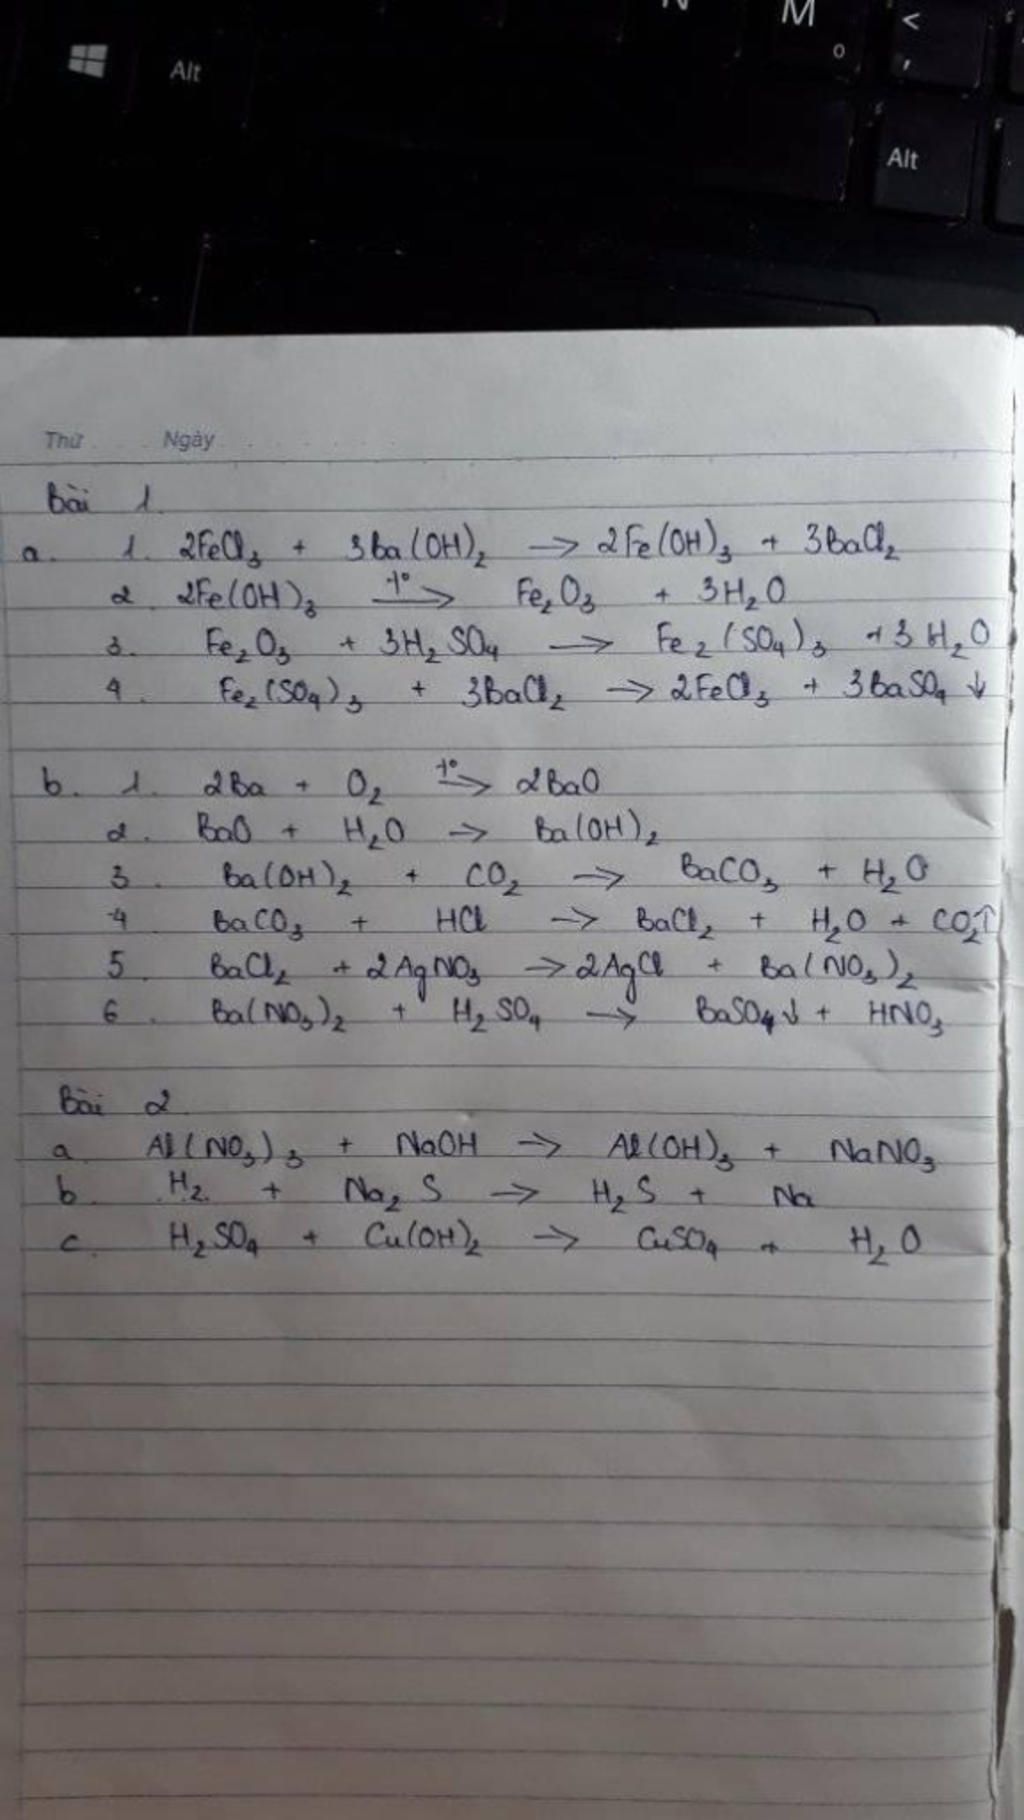 N M o < ,
Alt
Alt
Thứ Ngày
Bài 1.
a. 1. 2FeCl₃ + 3Ba(OH)₂ → 2Fe(OH)₃ + 3BaCl₂
2 2Fe(OH)₃ t°→ Fe₂O₃ + 3H₂O
3. Fe₂O₃ + 3H₂SO₄ → Fe₂(SO₄)₃ + 3H₂O
4. Fe₂(SO₄)₃ + 3BaCl₂ → 2FeCl₃ + 3BaSO₄ ↓
b. 1. 2Ba + O₂ t°→ 2BaO
2. BaO + H₂O → Ba(OH)₂
3. Ba(OH)₂ + CO₂ → BaCO₃ + H₂O
4 BaCO₃ + HCl → BaCl₂ + H₂O + CO₂↑
5 BaCl₂ + 2AgNO₃ → 2AgCl + Ba(NO₃)₂
6. Ba(NO₃)₂ + H₂SO₄ → BaSO₄↓ + HNO₃
Bài 2
a. Al(NO₃)₃ + NaOH → Al(OH)₃ + NaNO₃
b. H₂ + Na₂S → H₂S + Na
c. H₂SO₄ + Cu(OH)₂ → CuSO₄ + H₂O